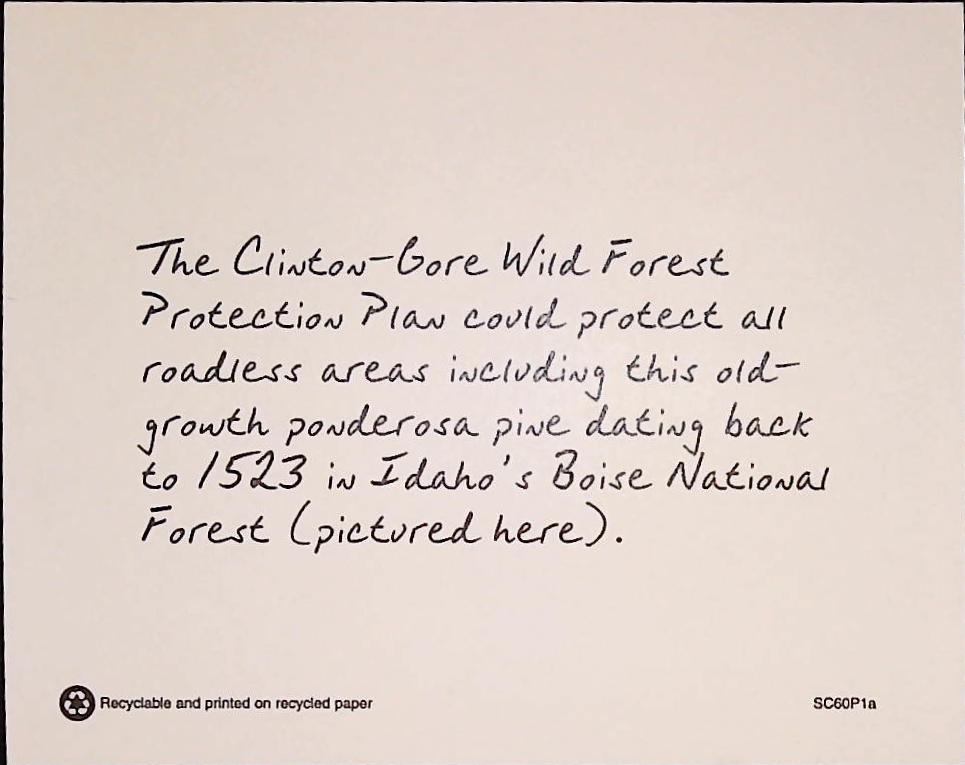 The Clinton-Gore Wild Forest
Protection Plan could protect all
roadless areas including this old-
growth ponderosa pine dating back
to 1523 in Idaho's Boise National
Forest (pictured here).
Recyclable and printed on recycled paper
SC60P1a